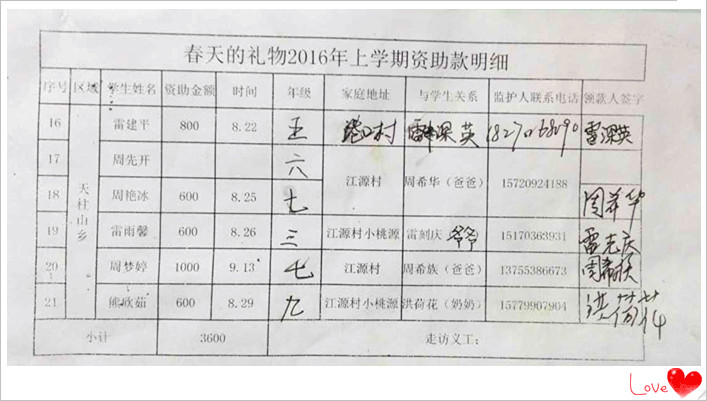 春天的礼物2016年上学期资助款明细
序号 区域 学生姓名 资助金额 时间 年级 家庭地址 与学生关系 监护人联系电话 领款人签字
16 雷建平 800 8.22 五 雷深英
17 周先开 六
18 周艳冰 600 8.25 七 江源村 周希华（爸爸） 15720924188 周希华
天柱山乡
19 雷雨馨 600 8.26 三 江源村小桃源 雷刻庆 爷爷 15170363931
20 周梦婷 1000 9.13 七 江源村 周希族（爸爸） 13755386673 周希族
21 熊欣茹 600 8.29 九 江源村小桃源 洪荷花（奶奶） 15779907904 洪荷花
小计 3600 走访义工：
Love